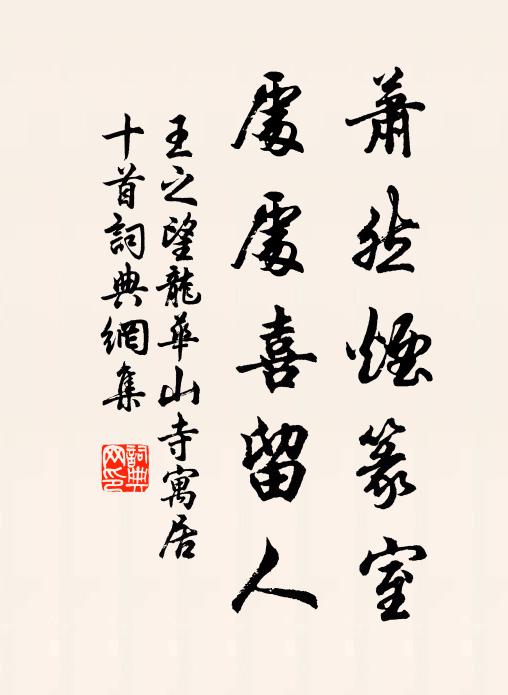 蕭然煙篆室
處處喜留人
王之望龍華山寺寓居
十首詞典網集
詞典網印